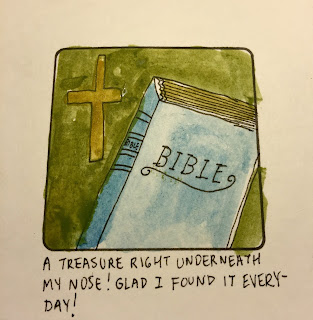 BIBLE
BIBLE
A TREASURE RIGHT UNDERNEATH
MY NOSE! GLAD I FOUND IT EVERY-
DAY!